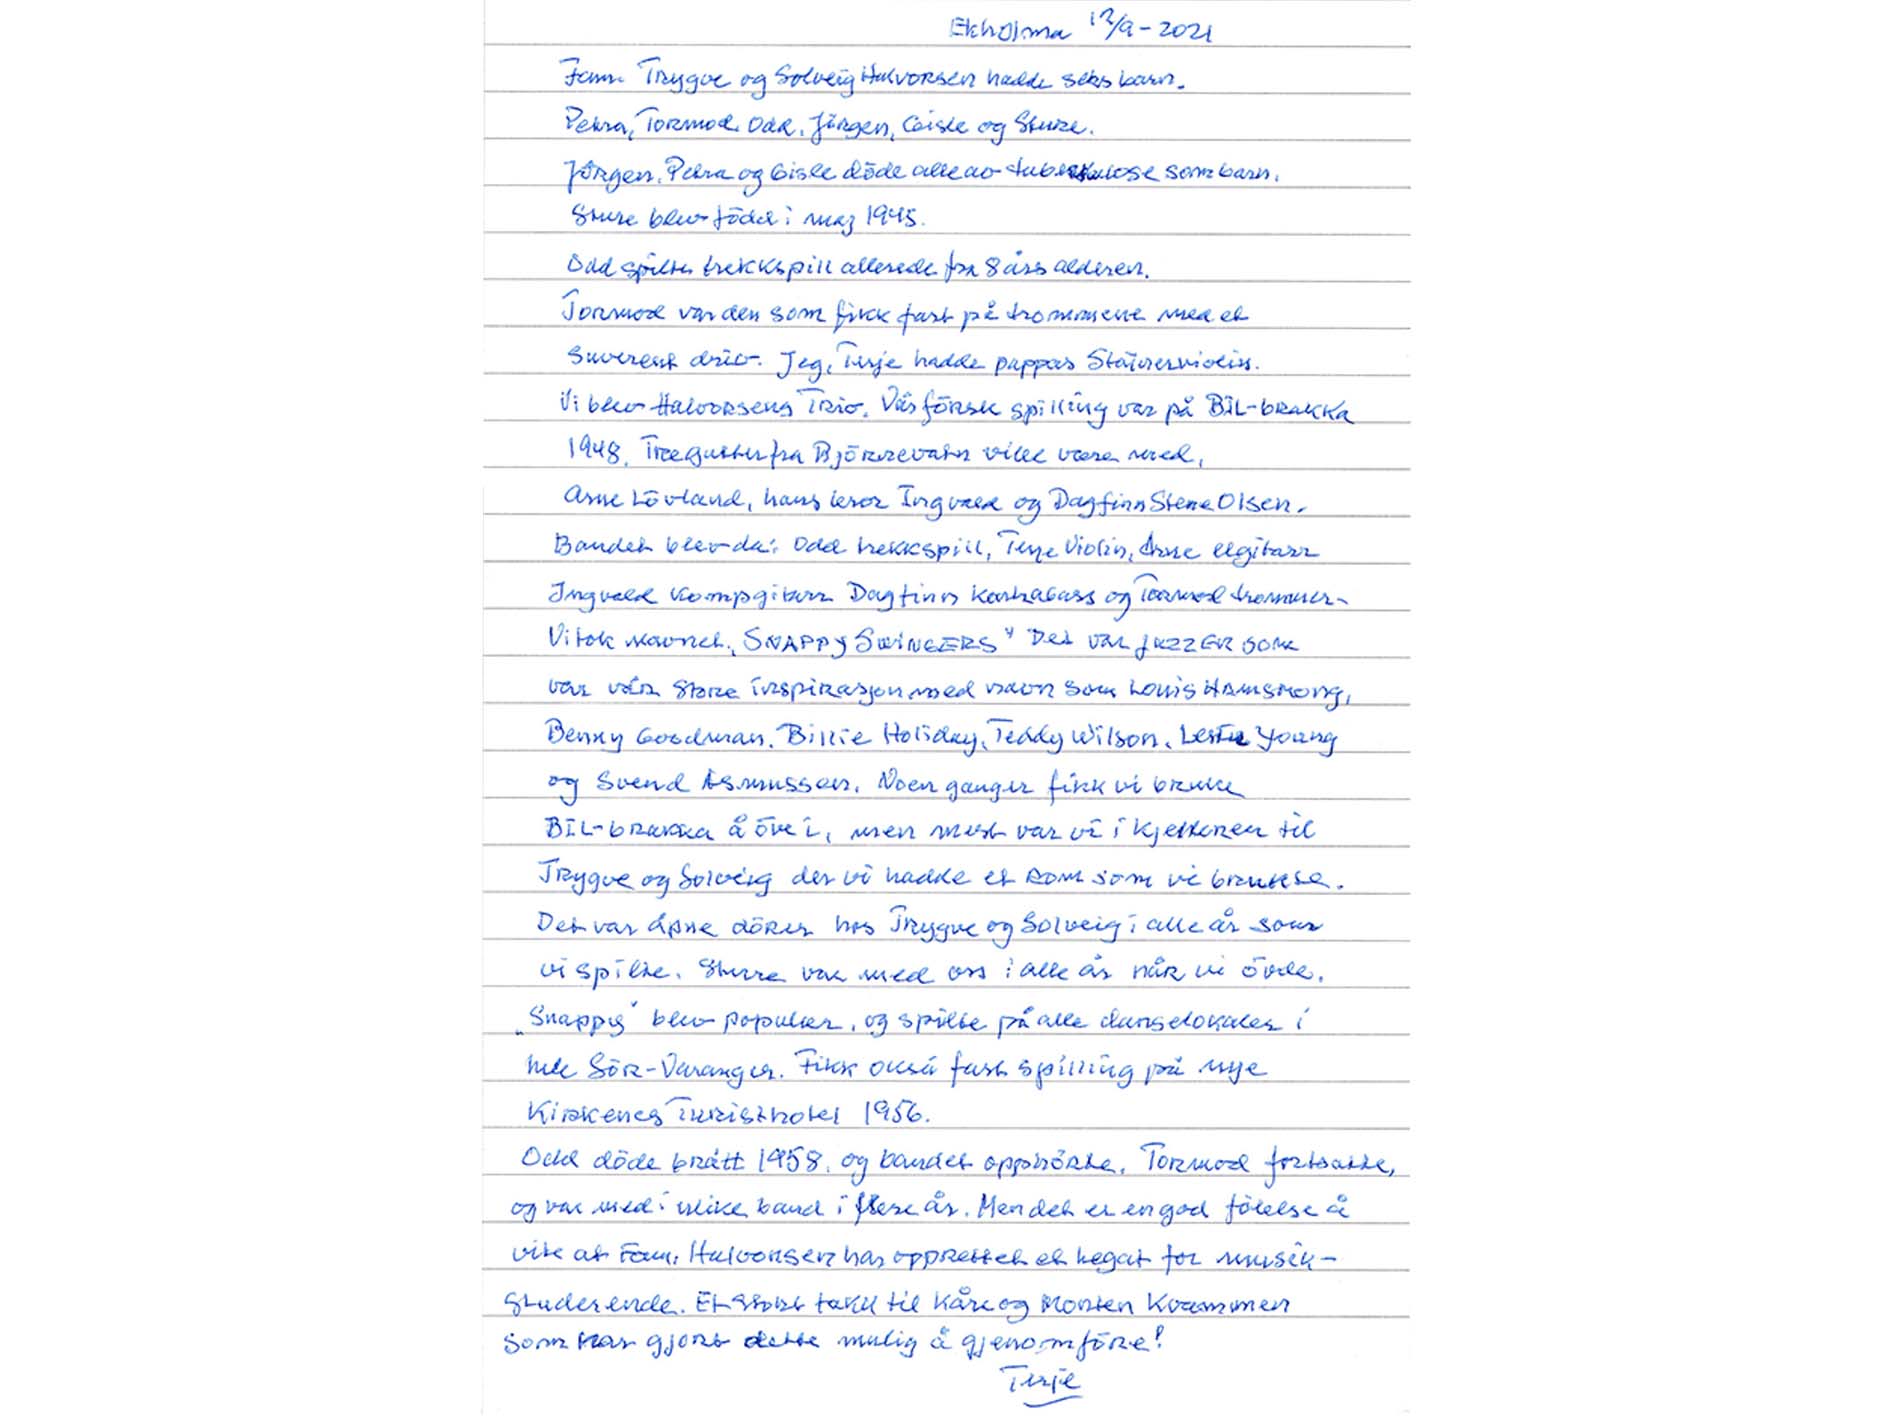 Ekholma 12/9-2021
Fam. Trygve og Solveig Halvorsen hadde seks barn.
Petra, Tormod, Odd, Jörgen, Gisle og Sture.
Jörgen, Petra og Gisle döde alle av tuberkulose som barn.
Sture blev född i maj 1945.
Odd spilte trekkspill allerede fra 8 års alderen.
Tormod var den som fikk fart på trommene med et
suverent driv. Jeg, Terje hadde pappas Stainerviolin.
Vi blev Halvorsens Trio. Vår första spilling var på BIL-brakka
1948. Tre gutter fra Björnevatn ville være med,
Arne Lövland, hans bror Ingvald og Dagfinn Stene Olsen.
Bandet blev da: Odd trekkspill, Terje Violin, Arne elgitarr
Ingvald kompgitarr Dagfinn kontrabass og Tormod trommer-
Vi tok navnet „SNAPPY SWINGERS" Det var JAZZEN som
var vår store inspirasjon med navn som Louis Armstrong,
Benny Goodman, Billie Holiday, Teddy Wilson, Lester Young
og Svend Asmussen. Noen ganger fikk vi bruke
BIL-brakka å öve i, men mest var vi i kjelleren til
Trygve og Solveig der vi hadde et rom som vi brukte.
Det var åpne dörer hos Trygve og Solveig i alle år som
vi spilte. Sture var med oss i alle år når vi övde.
„Snappy" blev populær, og spilte på alle danselokaler i
hele Sör-Varanger. Fikk också fast spilling på nye
Kirkenes Turisthotel 1956.
Odd döde brått 1958, og bandet opphörte. Tormod fortsatte,
og var med i ulike band i flere år. Men det er en god fölelse å
vite at Fam. Halvorsen har opprettet et legat for musik-
studerende. Et stort takk til Kåre og Morten Kvammen
som har gjort dette mulig å gjenomföre!
Terje